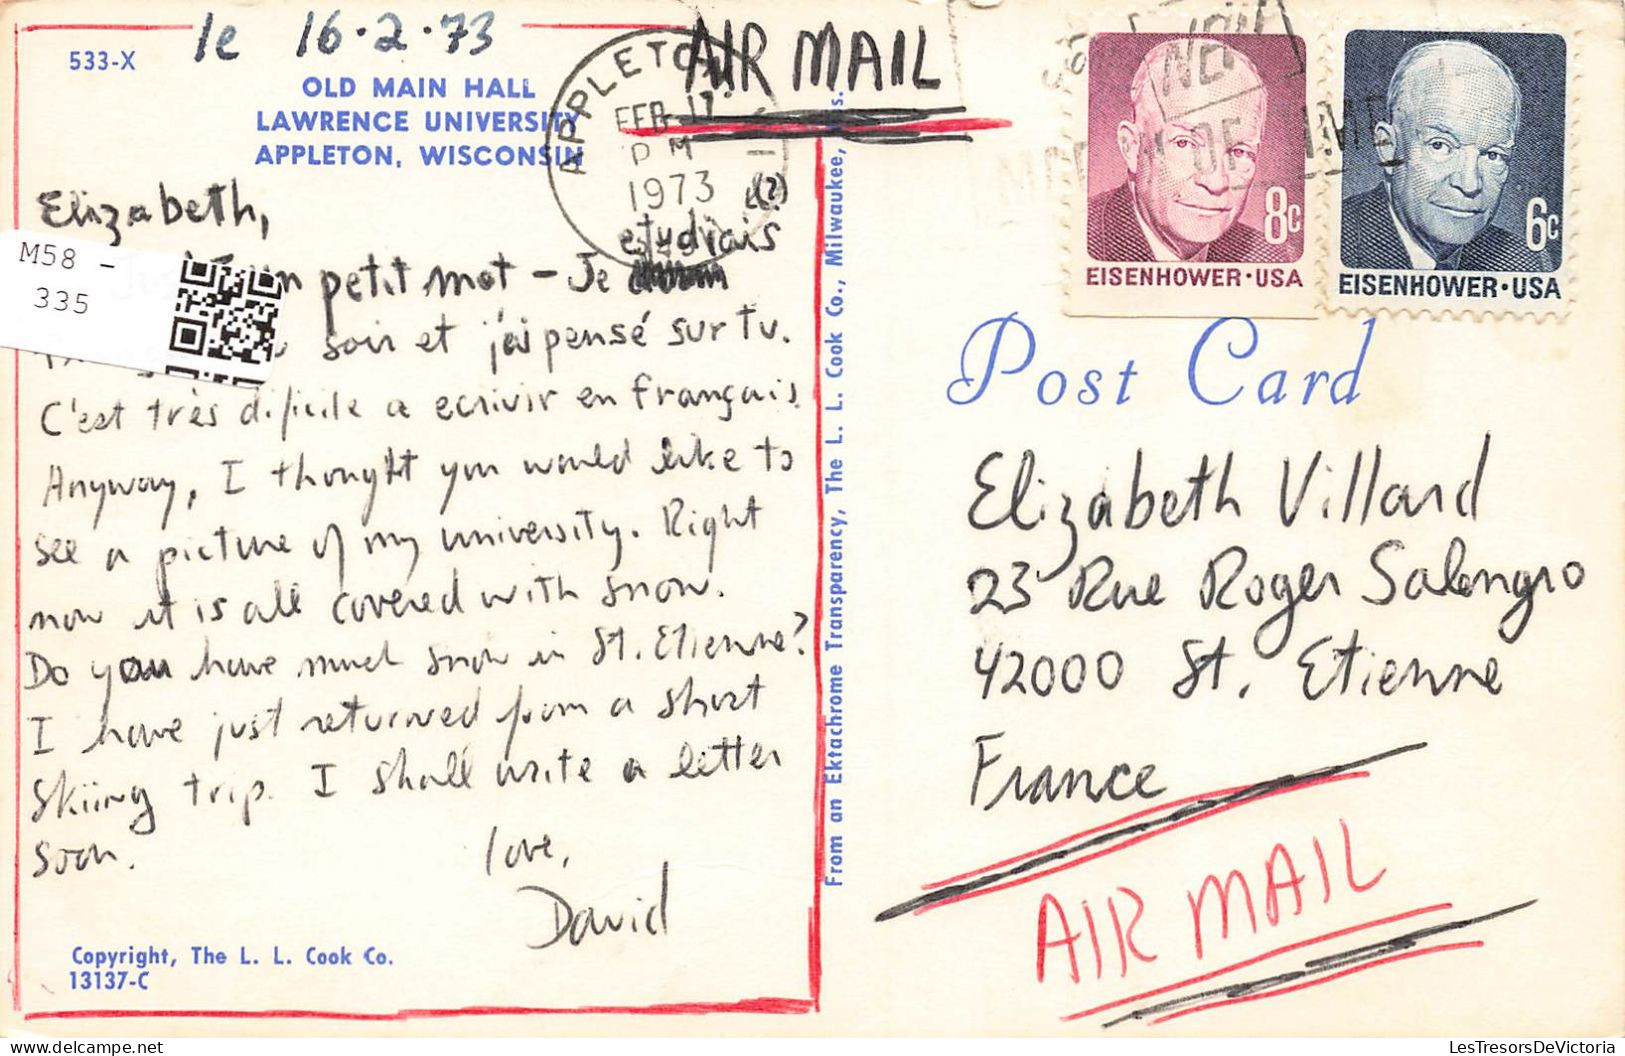 le 16.2.73
533-X
OLD MAIN HALL
LAWRENCE UNIVERSITY
APPLETON, WISCONSIN
AIR MAIL
APPLETON
FEB 17
PM
1973
M58 -
335
Elizabeth,
un petit mot - Je etudiais (?)
soir et j'ai pensé sur tu.
C'est très dificile a ecrivir en français.
Anyway, I thought you would like to
see a picture of my university. Right
now it is all covered with snow.
Do you have much snow in St. Etienne?
I have just returned from a short
skiing trip. I shall write a letter
soon.
love,
David
Copyright, The L. L. Cook Co.
13137-C
From an Ektachrome Transparency, The L. L. Cook Co., Milwaukee,
8c
EISENHOWER·USA
6c
EISENHOWER·USA
Post Card
Elizabeth Villard
23 Rue Roger Salengro
42000 St. Etienne
France
AIR MAIL
LesTresorsDeVictoria